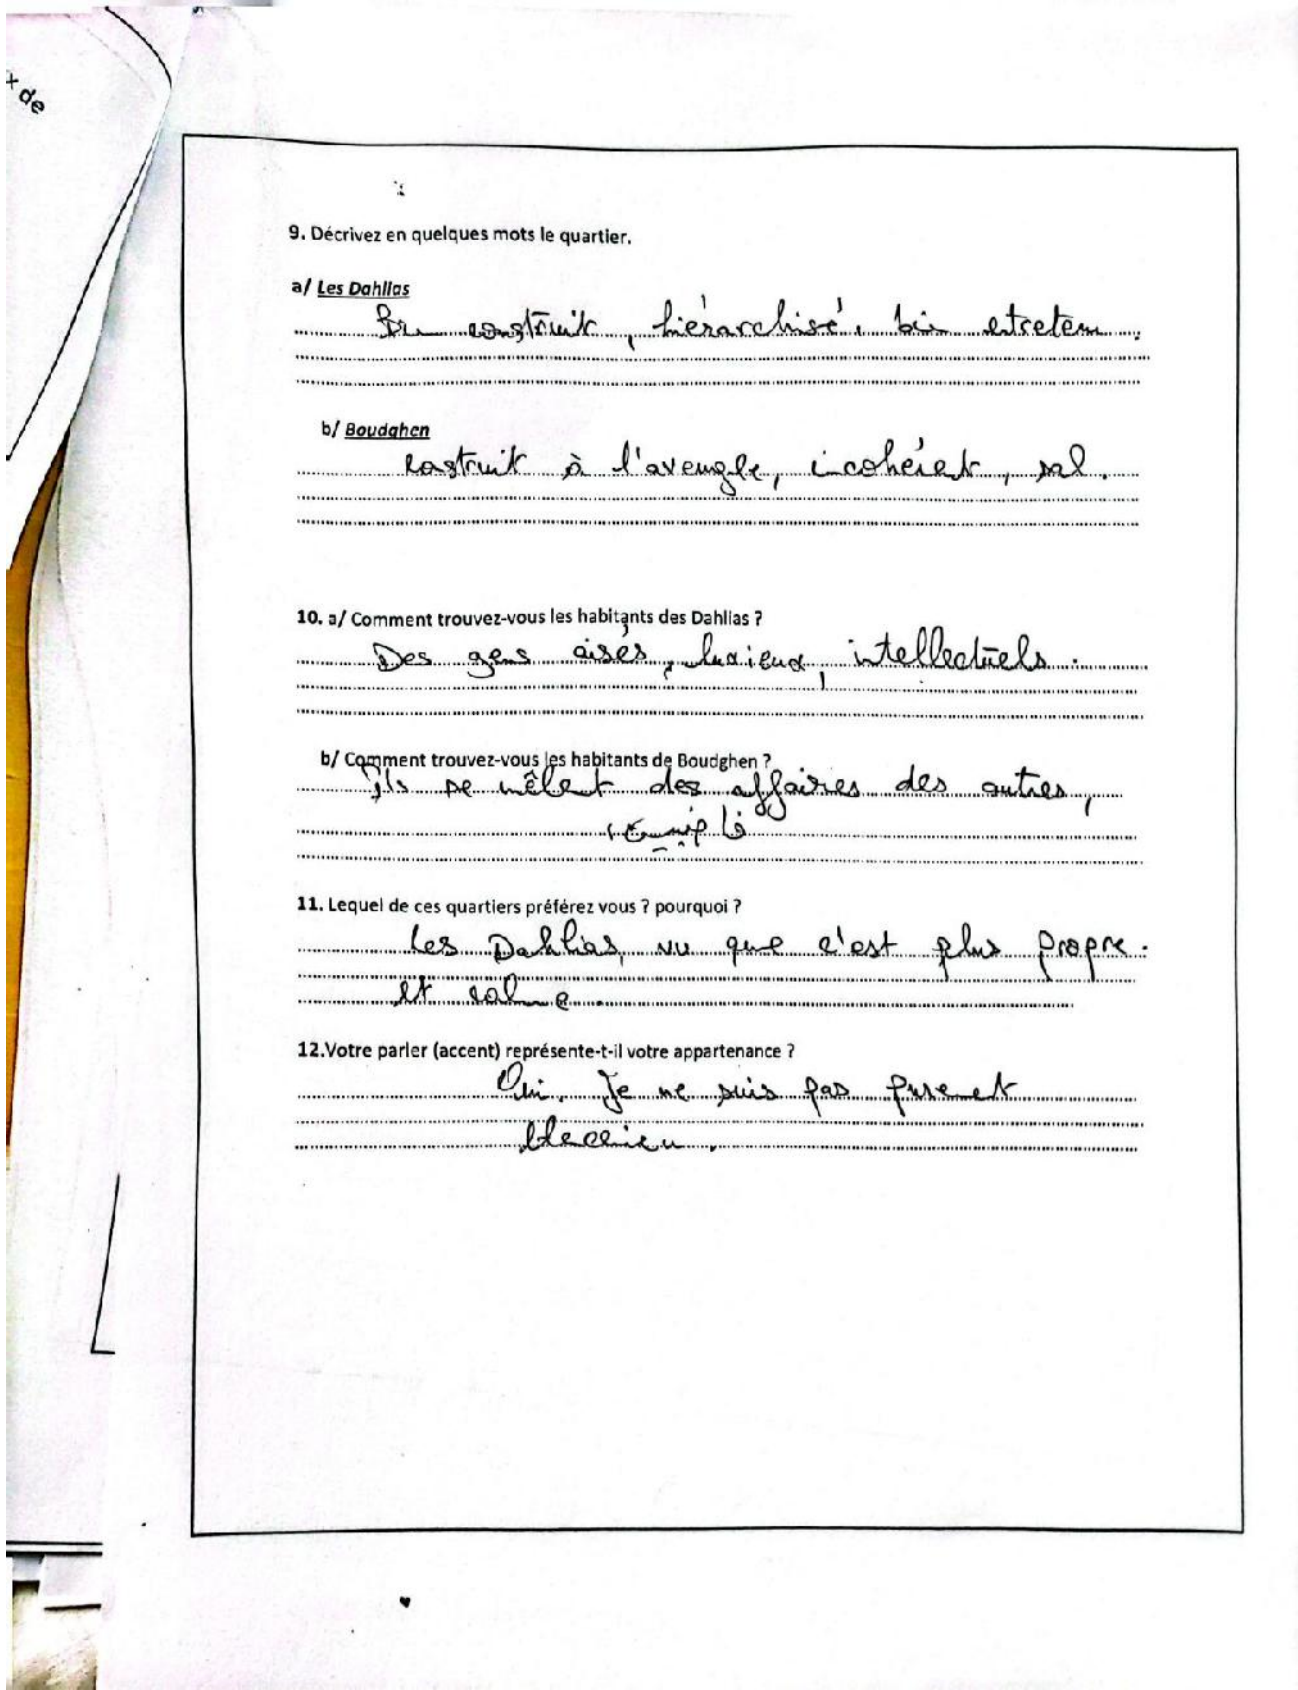 x de
9. Décrivez en quelques mots le quartier.
a/ Les Dahlias
Bien construit, hiérarchisé, bien entretenu.
b/ Boudghen
construit à l'aveugle, incohérent, sal.
10. a/ Comment trouvez-vous les habitants des Dahlias ?
Des gens aisés, luxieux, intellectuels.
b/ Comment trouvez-vous les habitants de Boudghen ?
ils se mêlent des affaires des autres,
11. Lequel de ces quartiers préférez vous ? pourquoi ?
Les Dahlias, vu que c'est plus propre.
et calme.
12.Votre parler (accent) représente-t-il votre appartenance ?
Oui. Je ne suis pas purement
tlecenien.